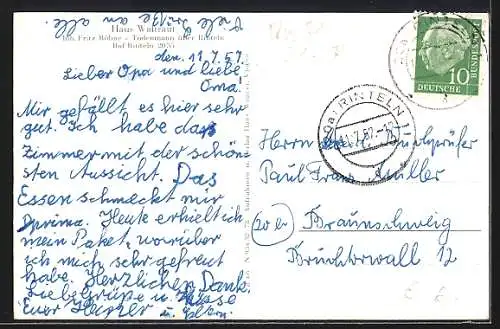 Viele Grüße an alle
Haus Waltraut
Inh. Fritz Böhne - Todenmann über Rinteln
Bad Rinteln 2055
den 11.7.57.
Lieber Opa und liebe
Oma!
Mir gefällt es hier sehr
gut. Ich habe das
Zimmer mit der schön
sten Aussicht. Das
Essen schmeckt mir
prima. Heute erhielt ich
mein Paket, worüber
ich mich sehr gefreut
habe. Herzlichen Dank
Liebe Grüße u. Küsse
Euer u. Eltern.
10
DEUTSCHE
BUNDESPOST
RINTELN
11.7.57
Herrn
Paul Franz Müller
(20b) Braunschweig
Bruchtorwall 12